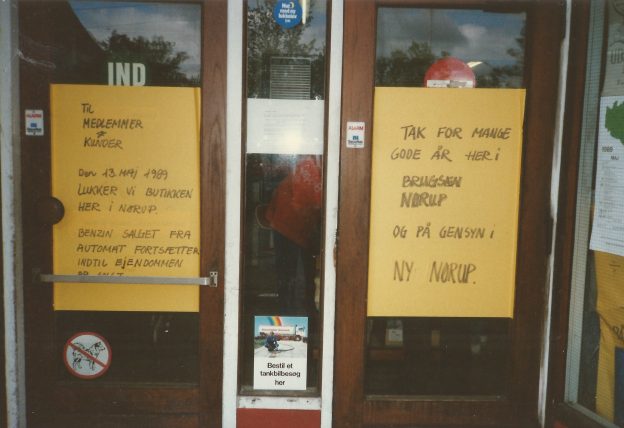 IND
TIL
MEDLEMMER
&
KUNDER
Den 13. MAJ 1989
LUKKER VI BUTIKKEN
HER I NØRUP.
BENZIN SALGET FRA
AUTOMAT FORTSÆTTER
INDTIL EJENDOMMEN
ER SOLGT
ALARM
Bestil et
tankbilbesøg
her
ALARM
TAK FOR MANGE
GODE ÅR HER I
BRUGSEN
NØRUP
OG PÅ GENSYN I
NY NØRUP.
1989
MAJ